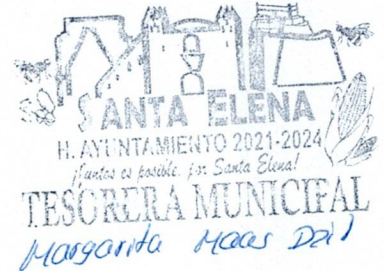 SANTA ELENA
H. AYUNTAMIENTO 2021-2024
¡Juntos es posible, por Santa Elena!
TESORERA MUNICIPAL
Margarita Maas Dzil